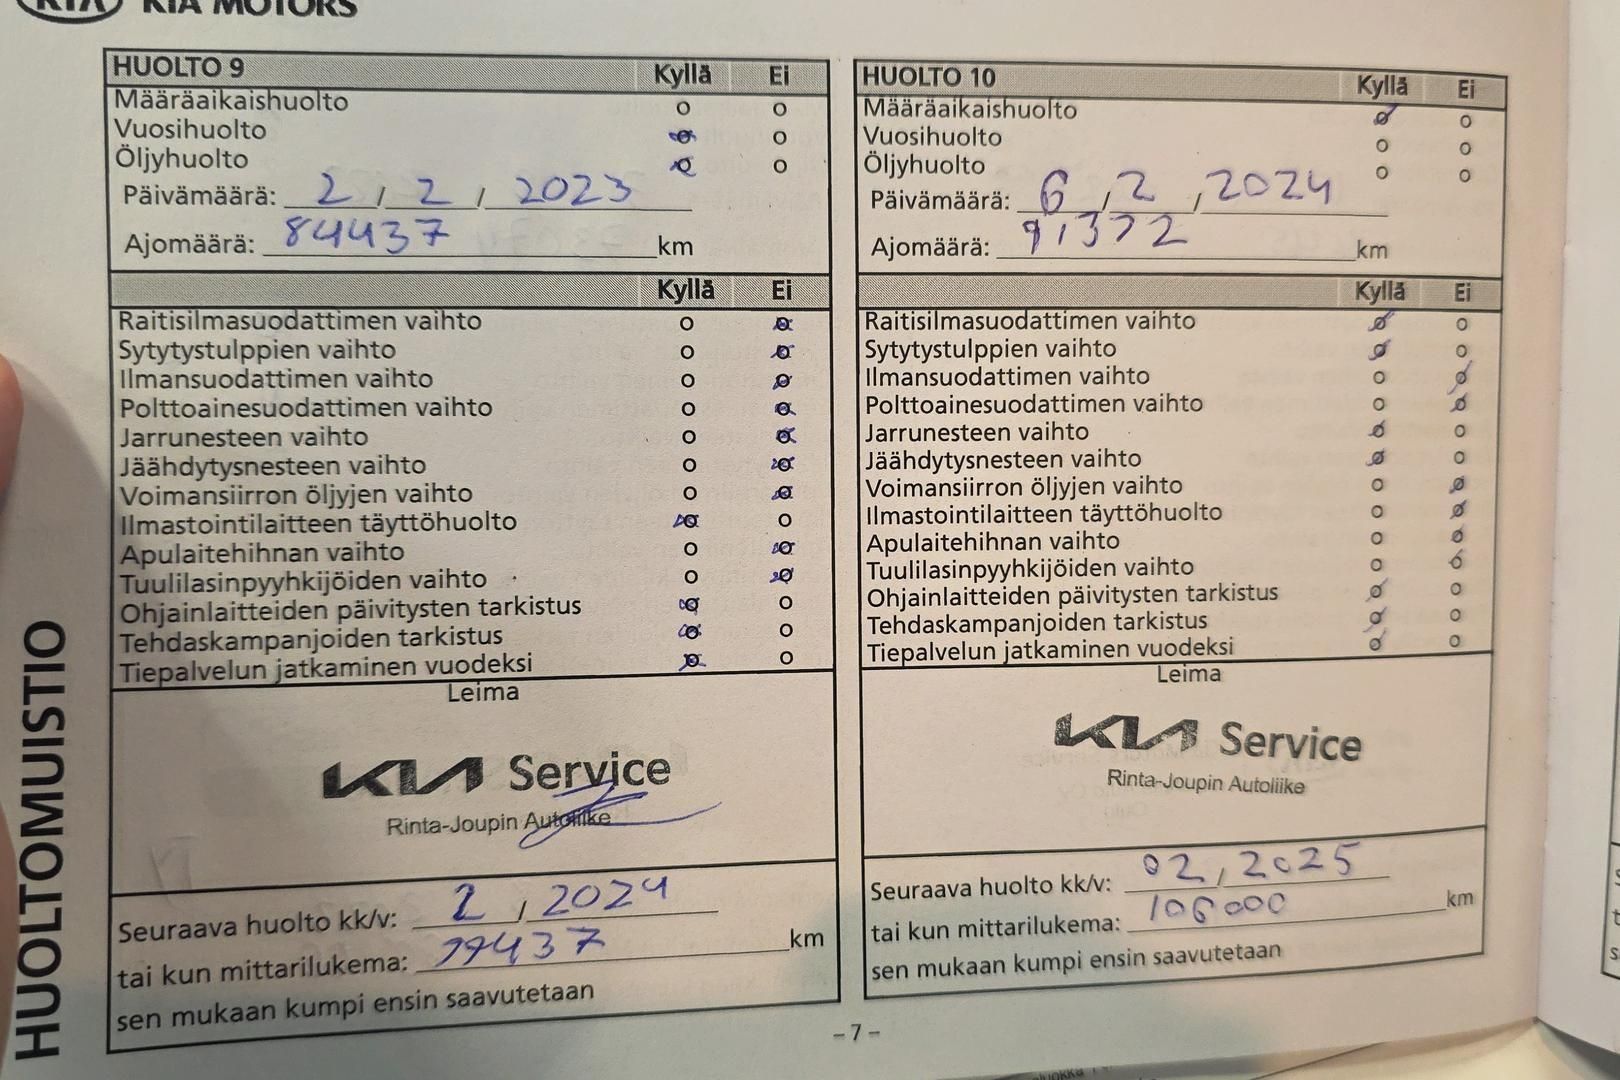 KIA KIA MOTORS
HUOLTOMUISTIO
HUOLTO 9 Kyllä Ei
Määräaikaishuolto o o
Vuosihuolto o o
Öljyhuolto o o
Päivämäärä: 2 / 2 / 2023
Ajomäärä: 84437 km
Kyllä Ei
Raitisilmasuodattimen vaihto o o
Sytytystulppien vaihto o o
Ilmansuodattimen vaihto o o
Polttoainesuodattimen vaihto o o
Jarrunesteen vaihto o o
Jäähdytysnesteen vaihto o o
Voimansiirron öljyjen vaihto o o
Ilmastointilaitteen täyttöhuolto o o
Apulaitehihnan vaihto o o
Tuulilasinpyyhkijöiden vaihto o o
Ohjainlaitteiden päivitysten tarkistus o o
Tehdaskampanjoiden tarkistus o o
Tiepalvelun jatkaminen vuodeksi o o
Leima
KIA Service
Rinta-Joupin Autoliike
Seuraava huolto kk/v: 2 / 2024
tai kun mittarilukema: 99437 km
sen mukaan kumpi ensin saavutetaan
HUOLTO 10 Kyllä Ei
Määräaikaishuolto o o
Vuosihuolto o o
Öljyhuolto o o
Päivämäärä: 6 / 2 / 2024
Ajomäärä: 91372 km
Kyllä Ei
Raitisilmasuodattimen vaihto o o
Sytytystulppien vaihto o o
Ilmansuodattimen vaihto o o
Polttoainesuodattimen vaihto o o
Jarrunesteen vaihto o o
Jäähdytysnesteen vaihto o o
Voimansiirron öljyjen vaihto o o
Ilmastointilaitteen täyttöhuolto o o
Apulaitehihnan vaihto o o
Tuulilasinpyyhkijöiden vaihto o o
Ohjainlaitteiden päivitysten tarkistus o o
Tehdaskampanjoiden tarkistus o o
Tiepalvelun jatkaminen vuodeksi o o
Leima
KIA Service
Rinta-Joupin Autoliike
Seuraava huolto kk/v: 02 / 2025
tai kun mittarilukema: 106000 km
sen mukaan kumpi ensin saavutetaan
– 7 –